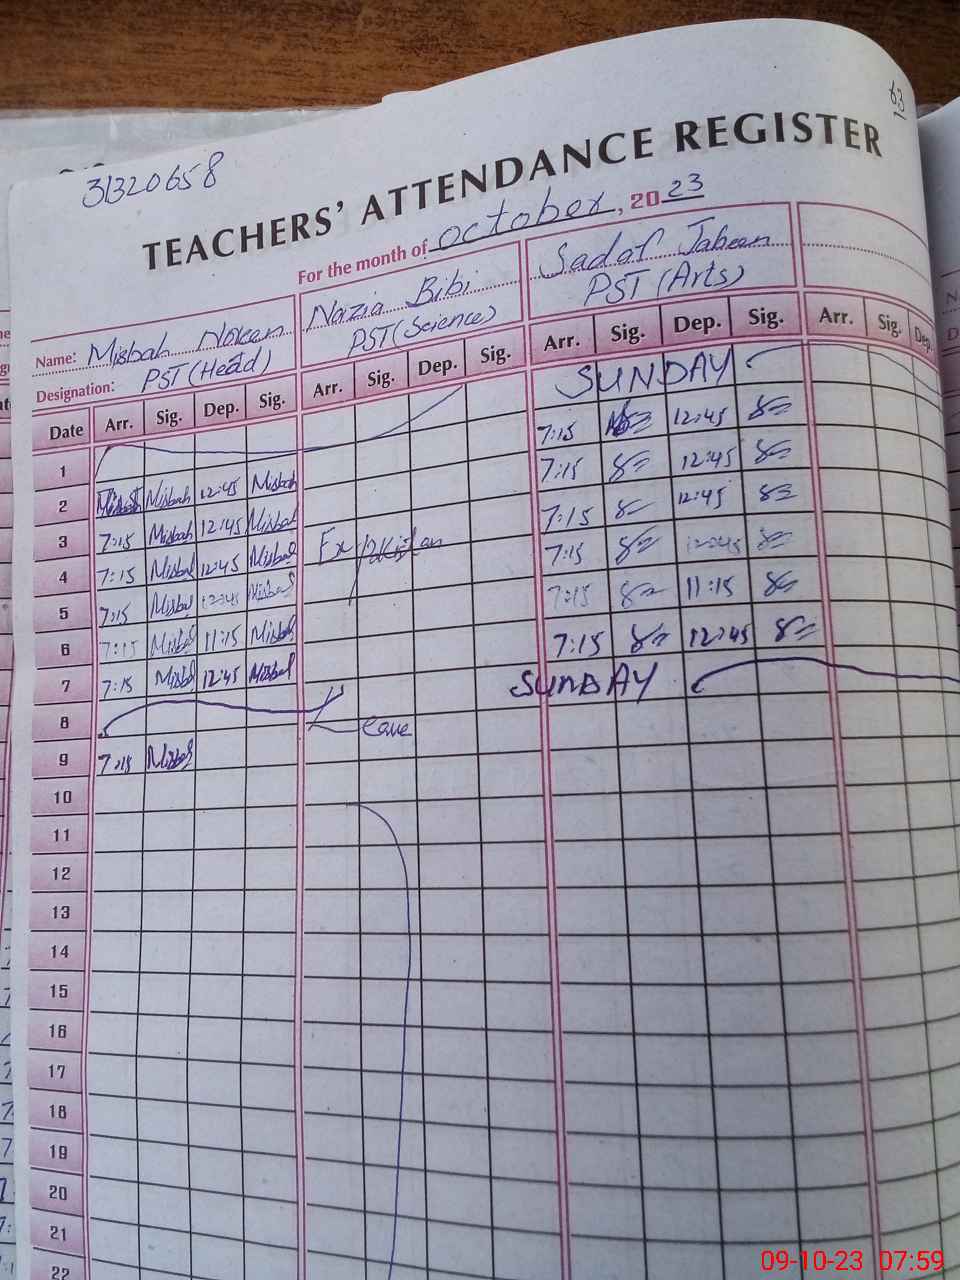 63
31320658
TEACHERS' ATTENDANCE REGISTER
For the month of October, 2023
Name: Misbah Noreen Nazia Bibi Sadaf Jabeen
Designation: PST (Head) PST (Science) PST (Arts)
Date Arr. Sig. Dep. Sig. Arr. Sig. Dep. Sig. Arr. Sig. Dep. Sig. Arr. Sig. Dep.
1 SUNDAY
2 Misbah 12:45 Misbah 7:15 12:45
3 7:15 Misbah 12:45 Misbah 7:15 12:45
4 7:15 Misbah 12:45 Misbah Ex-pakistan 7:15 12:45
5 7:15 Misbah 12:45 Misbah 7:15 12:45
6 7:15 Misbah 11:15 Misbah 7:15 11:15
7 7:15 Misbah 12:45 Misbah 7:15 12:45
8 SUNDAY
9 7:15 Misbah Leave
10
11
12
13
14
15
16
17
18
19
20
21
22
09-10-23 07:59